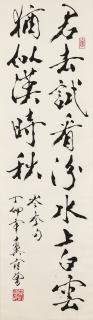 君去試看汾水上白雲
猶似漢時秋
岑參句
丁卯年